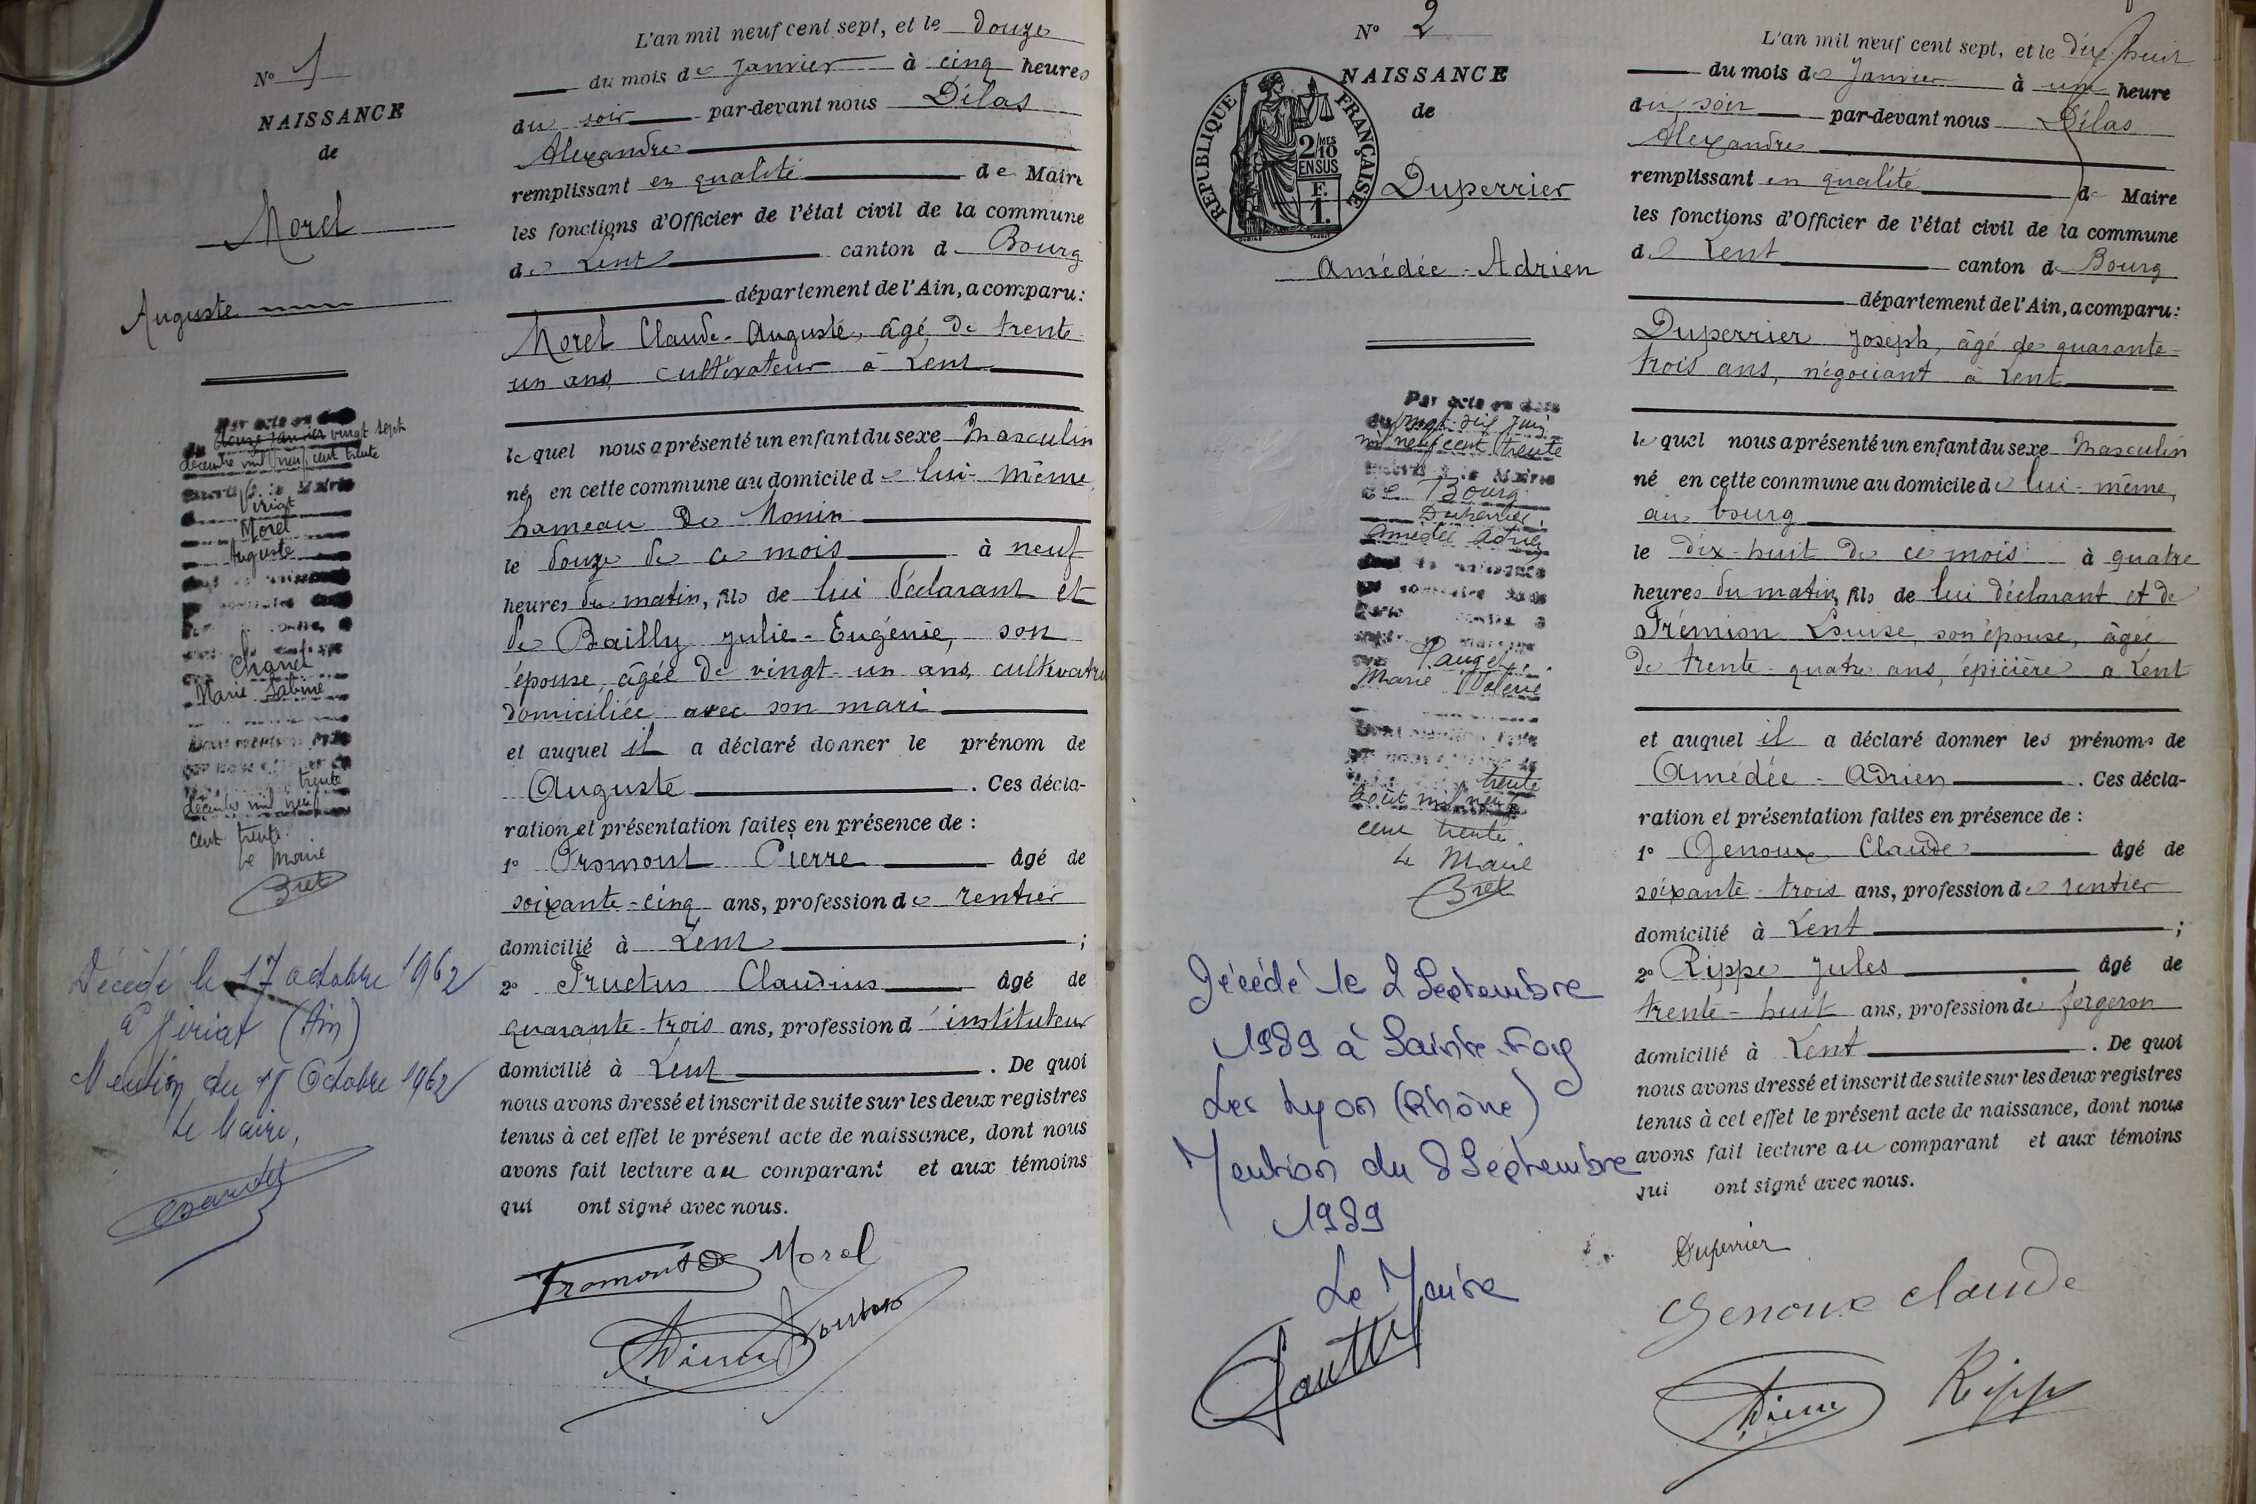 N° 1
NAISSANCE
de
Morel
Auguste
Par acte en date
du douze Janvier vingt sept
décembre mil neuf cent trente
Viriat
Morel
Auguste
Chanel
Marie Sabine
trente
décembre mil neuf
cent trente.
Le Maire
Bret
Décédé le 17 octobre 1962
à Viriat (Ain)
Mention du Octobre 1962
Le Maire,
L'an mil neuf cent sept, et le douze
du mois de Janvier à cinq heures
du soir par-devant nous Délas
Alexandre
remplissant en qualité de Maire
les fonctions d'Officier de l'état civil de la commune
de Lent canton de Bourg
département de l'Ain, a comparu:
Morel Claude-Auguste, âgé de trente
un ans, cultivateur à Lent
lequel nous a présenté un enfant du sexe Masculin
né en cette commune au domicile de lui-même,
hameau de Monin
le douze de ce mois à neuf
heures du matin, fils de lui déclarant et
de Bailly Julie-Eugénie, son
épouse, âgée de vingt-un ans, cultivatrice
domiciliée avec son mari
et auquel il a déclaré donner le prénom de
Auguste. Ces décla-
ration et présentation faites en présence de :
1° Fromont Pierre âgé de
soixante-cinq ans, profession de rentier
domicilié à Lent ;
2° Fructus Claudius âgé de
quarante-trois ans, profession d'instituteur
domicilié à Lent. De quoi
nous avons dressé et inscrit de suite sur les deux registres
tenus à cet effet le présent acte de naissance, dont nous
avons fait lecture au comparant et aux témoins
qui ont signé avec nous.
Fromont Morel
N° 2
NAISSANCE
de
RÉPUBLIQUE FRANÇAISE
2/10 MES
EN SUS
F.
1.
Duperrier
Amédée-Adrien
Par acte en date
du vingt-six Juin
mil neuf cent trente
Bourg
Duperrier
Amédée Adrien
Marie
trente
Août mil neuf
cent trente
Le Maire
Bret
Décédé le 2 Septembre
1989 à Sainte-Foy
Les Lyon (Rhône)
Mention du 8 Septembre
1989
Le Maire
L'an mil neuf cent sept, et le dix-huit
du mois de Janvier à une heure
du soir par-devant nous Délas
Alexandre
remplissant en qualité de Maire
les fonctions d'Officier de l'état civil de la commune
de Lent canton de Bourg
département de l'Ain, a comparu:
Duperrier Joseph, âgé de quarante-
trois ans, négociant à Lent
lequel nous a présenté un enfant du sexe Masculin
né en cette commune au domicile de lui-même,
au bourg
le dix-huit de ce mois à quatre
heures du matin, fils de lui déclarant et de
Trémion Louise, son épouse, âgée
de trente-quatre ans, épicière à Lent
et auquel il a déclaré donner les prénoms de
Amédée-Adrien. Ces décla-
ration et présentation faites en présence de :
1° Genoux Claude âgé de
soixante-trois ans, profession de rentier
domicilié à Lent ;
2° Rippe Jules âgé de
trente-huit ans, profession de forgeron
domicilié à Lent. De quoi
nous avons dressé et inscrit de suite sur les deux registres
tenus à cet effet le présent acte de naissance, dont nous
avons fait lecture au comparant et aux témoins
qui ont signé avec nous.
Duperrier
Genoux Claude
Ripp